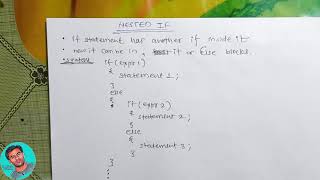 NESTED IF
• If statement has another if inside it
• now it can be in, if or else blocks.
Syntax if (expr 1)
{
statement 1;
}
else
{
if (expr 2)
{
statement 2;
}
else
{
statement 3;
}
}